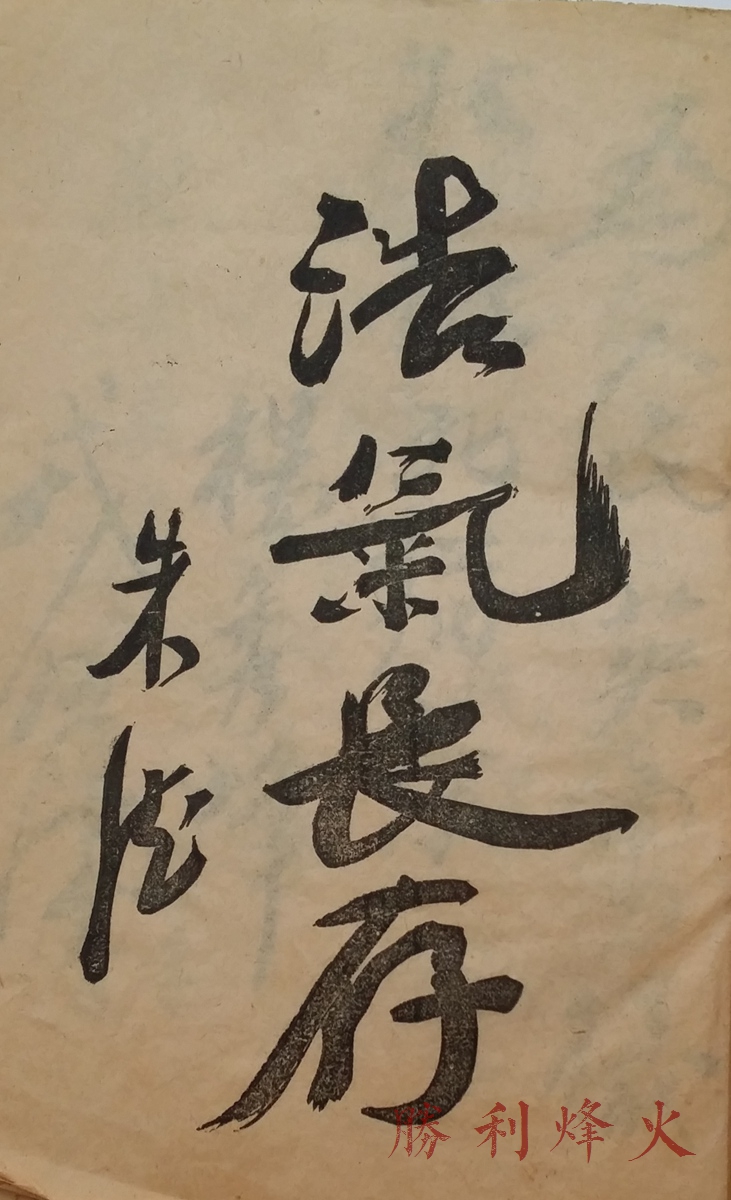 浩氣長存
朱德
勝利烽火